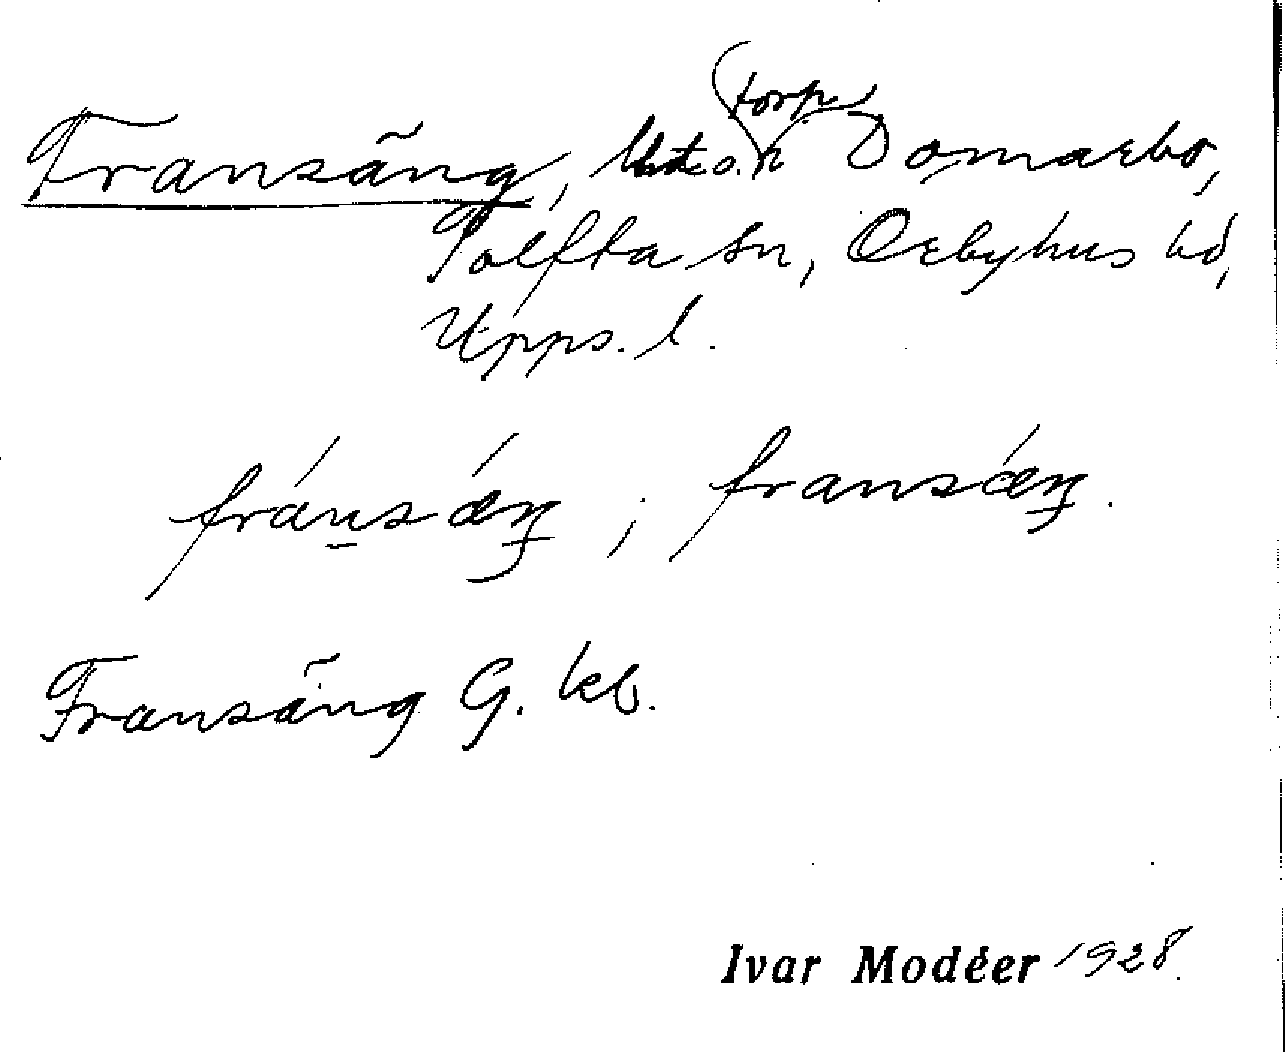 torp
Fransäng, o. i Domarbo,
Tolfta sn, Örbyhus hd,
Upps. l.
fránsǽŋ; fransǽŋ.
Fransäng G. kb.
Ivar Modéer 1928.